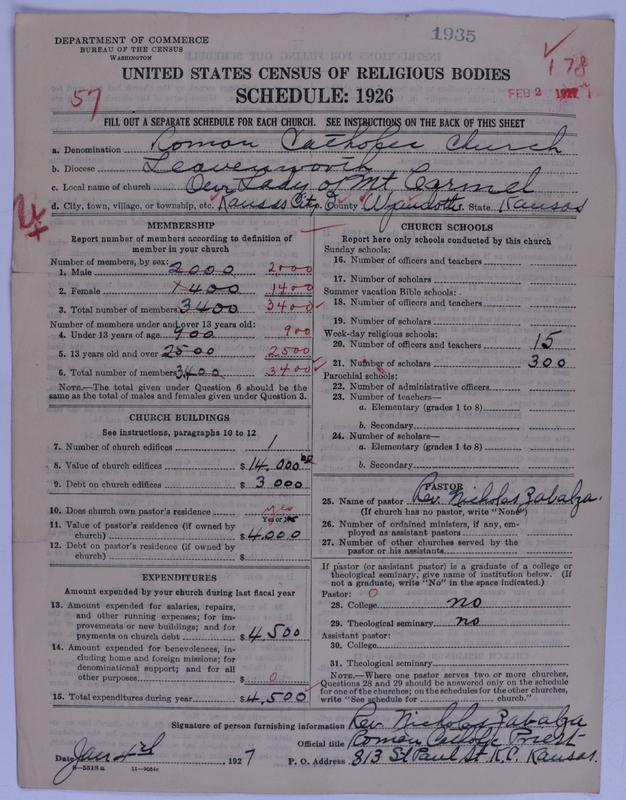 DEPARTMENT OF COMMERCE
BUREAU OF THE CENSUS
WASHINGTON
1935
178
57
UNITED STATES CENSUS OF RELIGIOUS BODIES
SCHEDULE: 1926
FEB 2 1927
FILL OUT A SEPARATE SCHEDULE FOR EACH CHURCH. SEE INSTRUCTIONS ON THE BACK OF THIS SHEET
a. Denomination Roman Catholic Church
b. Diocese Leavenworth
c. Local name of church Our Lady of Mt Carmel
d. City, town, village, or township, etc. Kansas City. County Wyandotte. State Kansas
MEMBERSHIP
Report number of members according to definition of
member in your church
Number of members, by sex:
1. Male 2000 2000
2. Female 1400 1400
3. Total number of members 3400 3400
Number of members under and over 13 years old:
4. Under 13 years of age 900 900
5. 13 years old and over 2500 2500
6. Total number of members 3400 3400
NOTE.—The total given under Question 6 should be the
same as the total of males and females given under Question 3.
CHURCH BUILDINGS
See instructions, paragraphs 10 to 12
7. Number of church edifices 1
8. Value of church edifices $ 14.000 00
9. Debt on church edifices $ 3 000
10. Does church own pastor's residence? yes
Yes or No
11. Value of pastor's residence (if owned by
church) $ 4.000
12. Debt on pastor's residence (if owned by
church) $
EXPENDITURES
Amount expended by your church during last fiscal year
13. Amount expended for salaries, repairs,
and other running expenses; for im-
provements or new buildings; and for
payments on church debt $ 4.500
14. Amount expended for benevolences, in-
cluding home and foreign missions; for
denominational support; and for all
other purposes $ 0
15. Total expenditures during year $ 4,500
CHURCH SCHOOLS
Report here only schools conducted by this church
Sunday schools:
16. Number of officers and teachers
17. Number of scholars
Summer vacation Bible schools:
18. Number of officers and teachers
19. Number of scholars
Week-day religious schools:
20. Number of officers and teachers 15
21. Number of scholars 300
Parochial schools:
22. Number of administrative officers
23. Number of teachers—
a. Elementary (grades 1 to 8)
b. Secondary
24. Number of scholars—
a. Elementary (grades 1 to 8)
b. Secondary
PASTOR
25. Name of pastor Rev. Nicholas Zabalza.
(If church has no pastor, write "None")
26. Number of ordained ministers, if any, em-
ployed as assistant pastors
27. Number of other churches served by the
pastor or his assistants
If pastor (or assistant pastor) is a graduate of a college or
theological seminary, give name of institution below. (If
not a graduate, write "No" in the space indicated.)
Pastor: 0
28. College no
29. Theological seminary no
Assistant pastor:
30. College
31. Theological seminary
NOTE.—Where one pastor serves two or more churches,
Questions 28 and 29 should be answered only on the schedule
for one of the churches; on the schedules for the other churches,
write "See schedule for church."
Signature of person furnishing information Rev. Nicholas Zabalza
Official title Roman Catholic Priest
Date Jan 4th, 1927 P. O. Address 813 St Paul St. K.C. Kansas.
8—5518a 11—9054